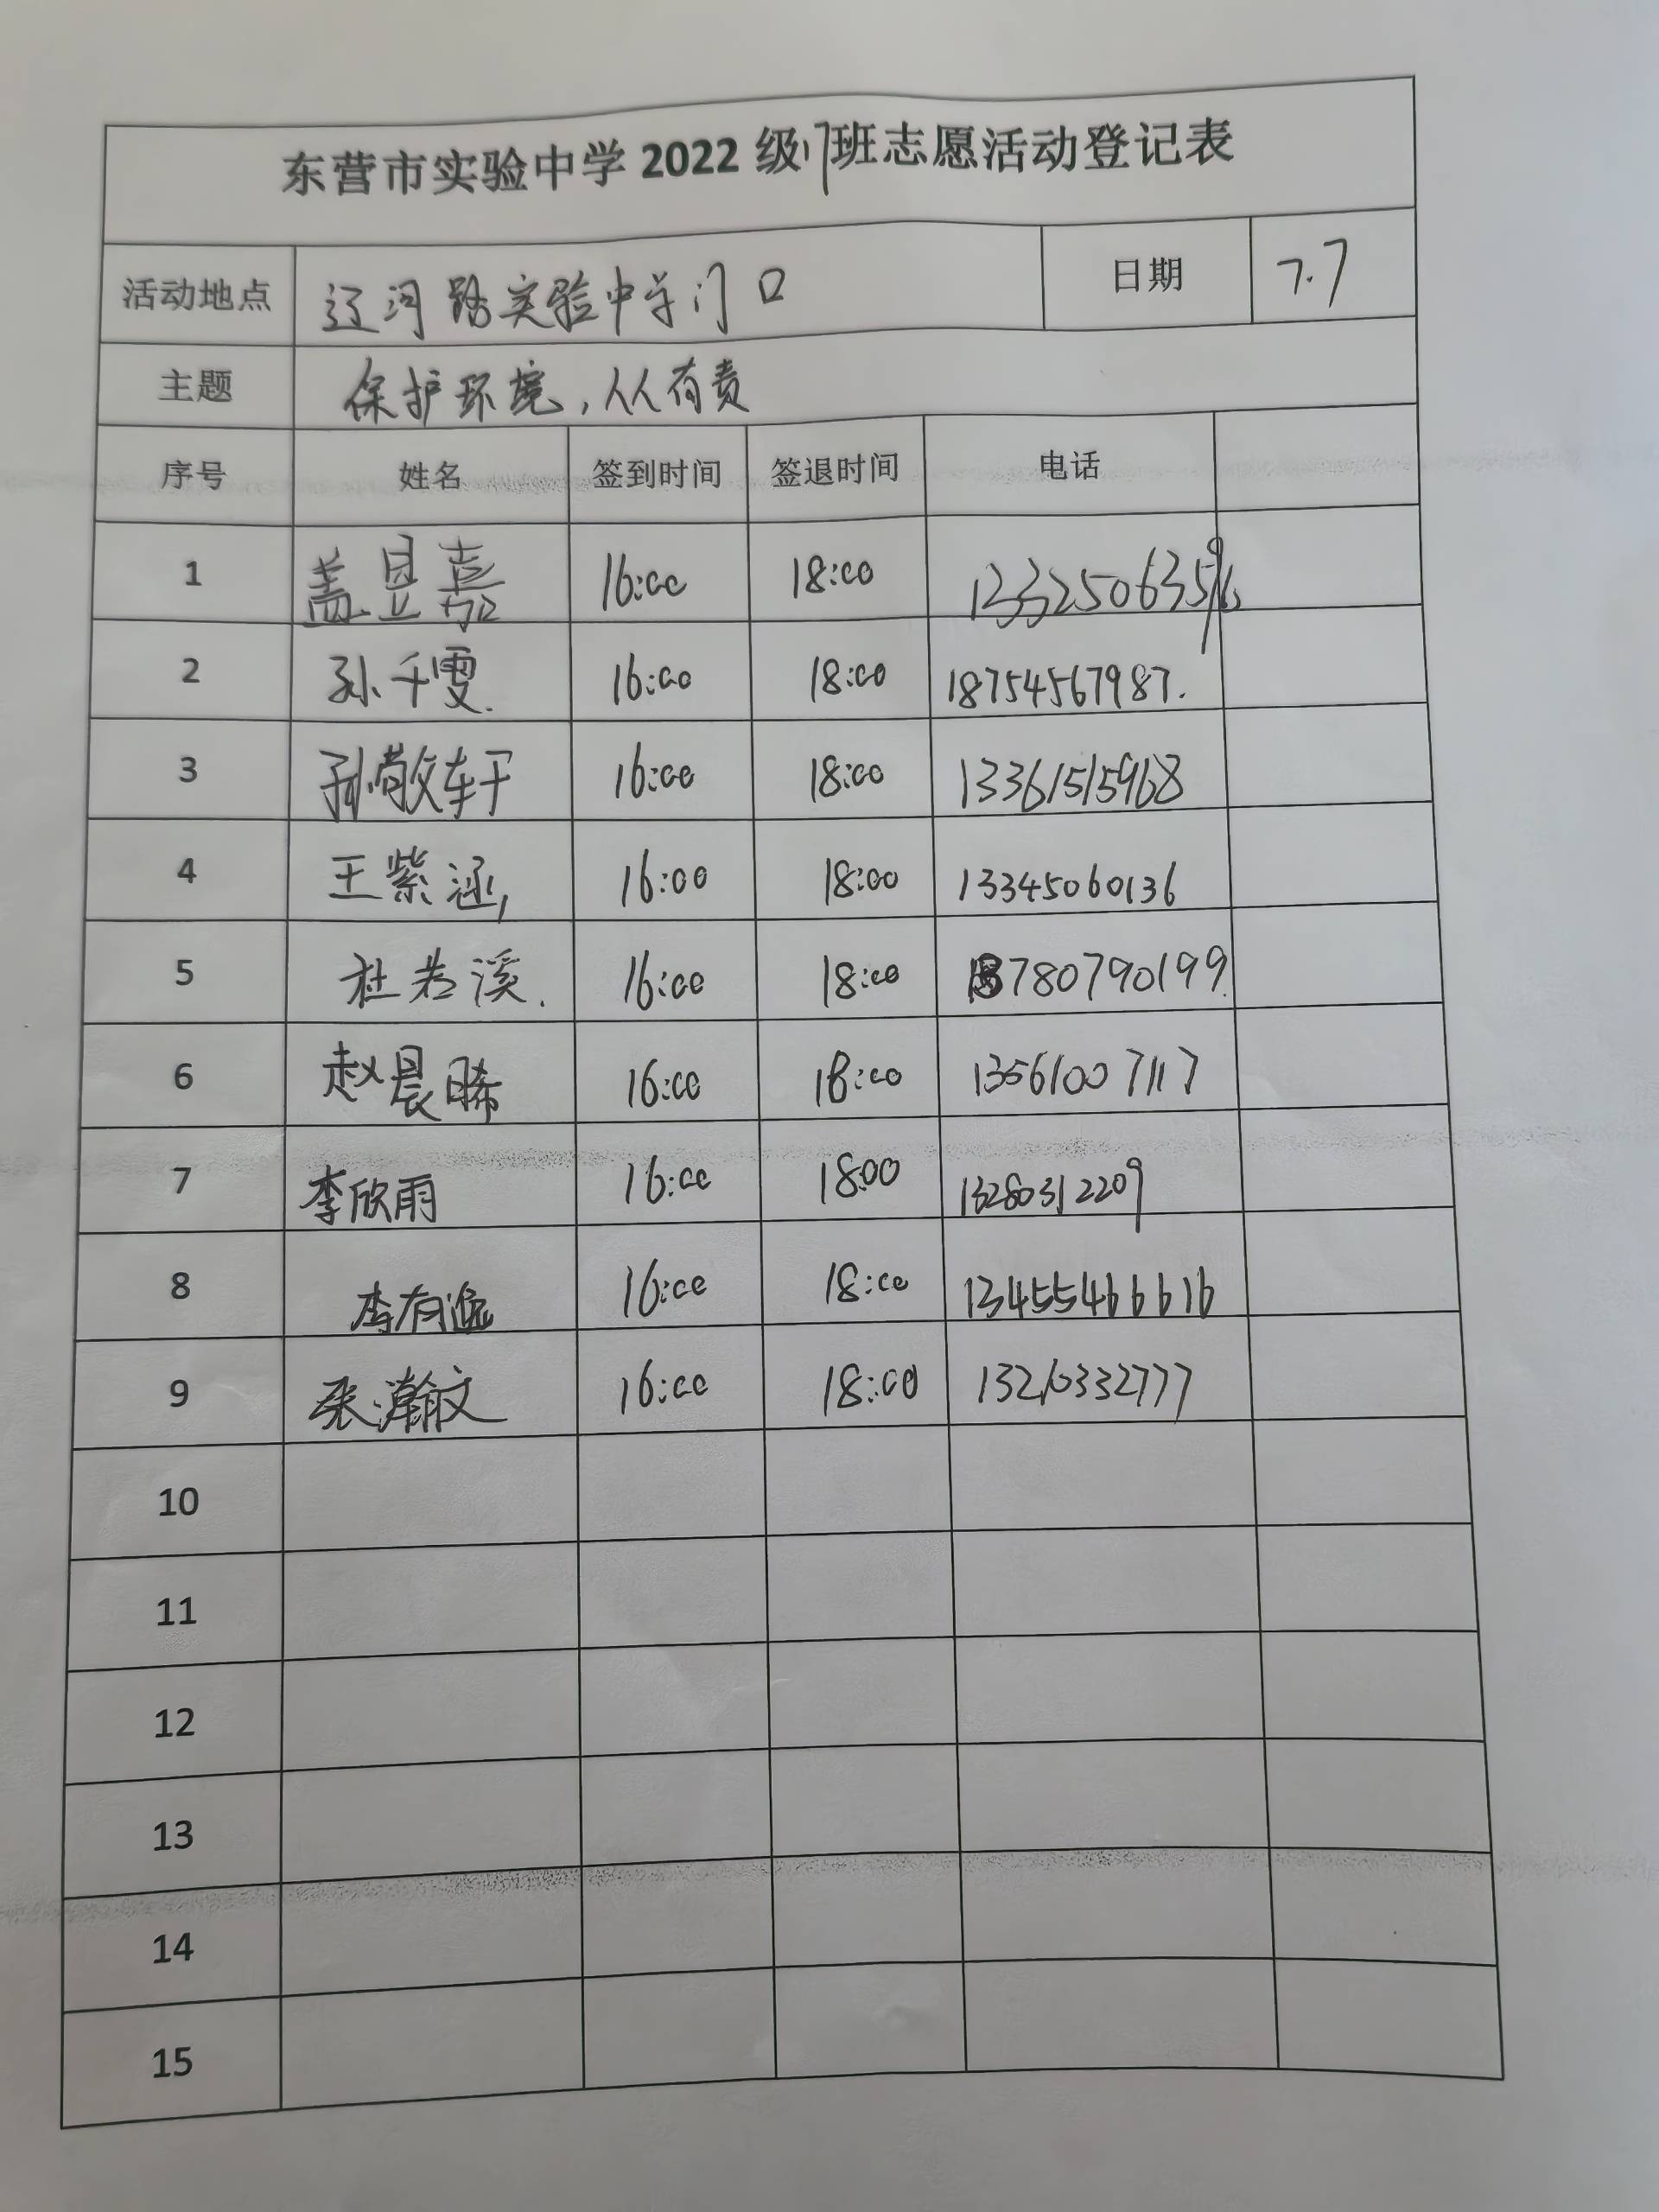 东营市实验中学2022级17班志愿活动登记表
活动地点 辽河路实验中学门口 日期 7.7
主题 保护环境,人人有责
序号 姓名 签到时间 签退时间 电话
1 盖昱嘉 16:00 18:00
2 孙千雯. 16:00 18:00 18754567987.
3 孙敬轩 16:00 18:00 13361515968
4 王紫涵, 16:00 18:00 13345060136
5 杜若溪. 16:00 18:00
6 赵晨晞 16:00 18:00 13561007117
7 李欣雨 16:00 18:00 13280312209
8 李有 16:00 18:00 13455466616
9 张瀚文 16:00 18:00
10
11
12
13
14
15